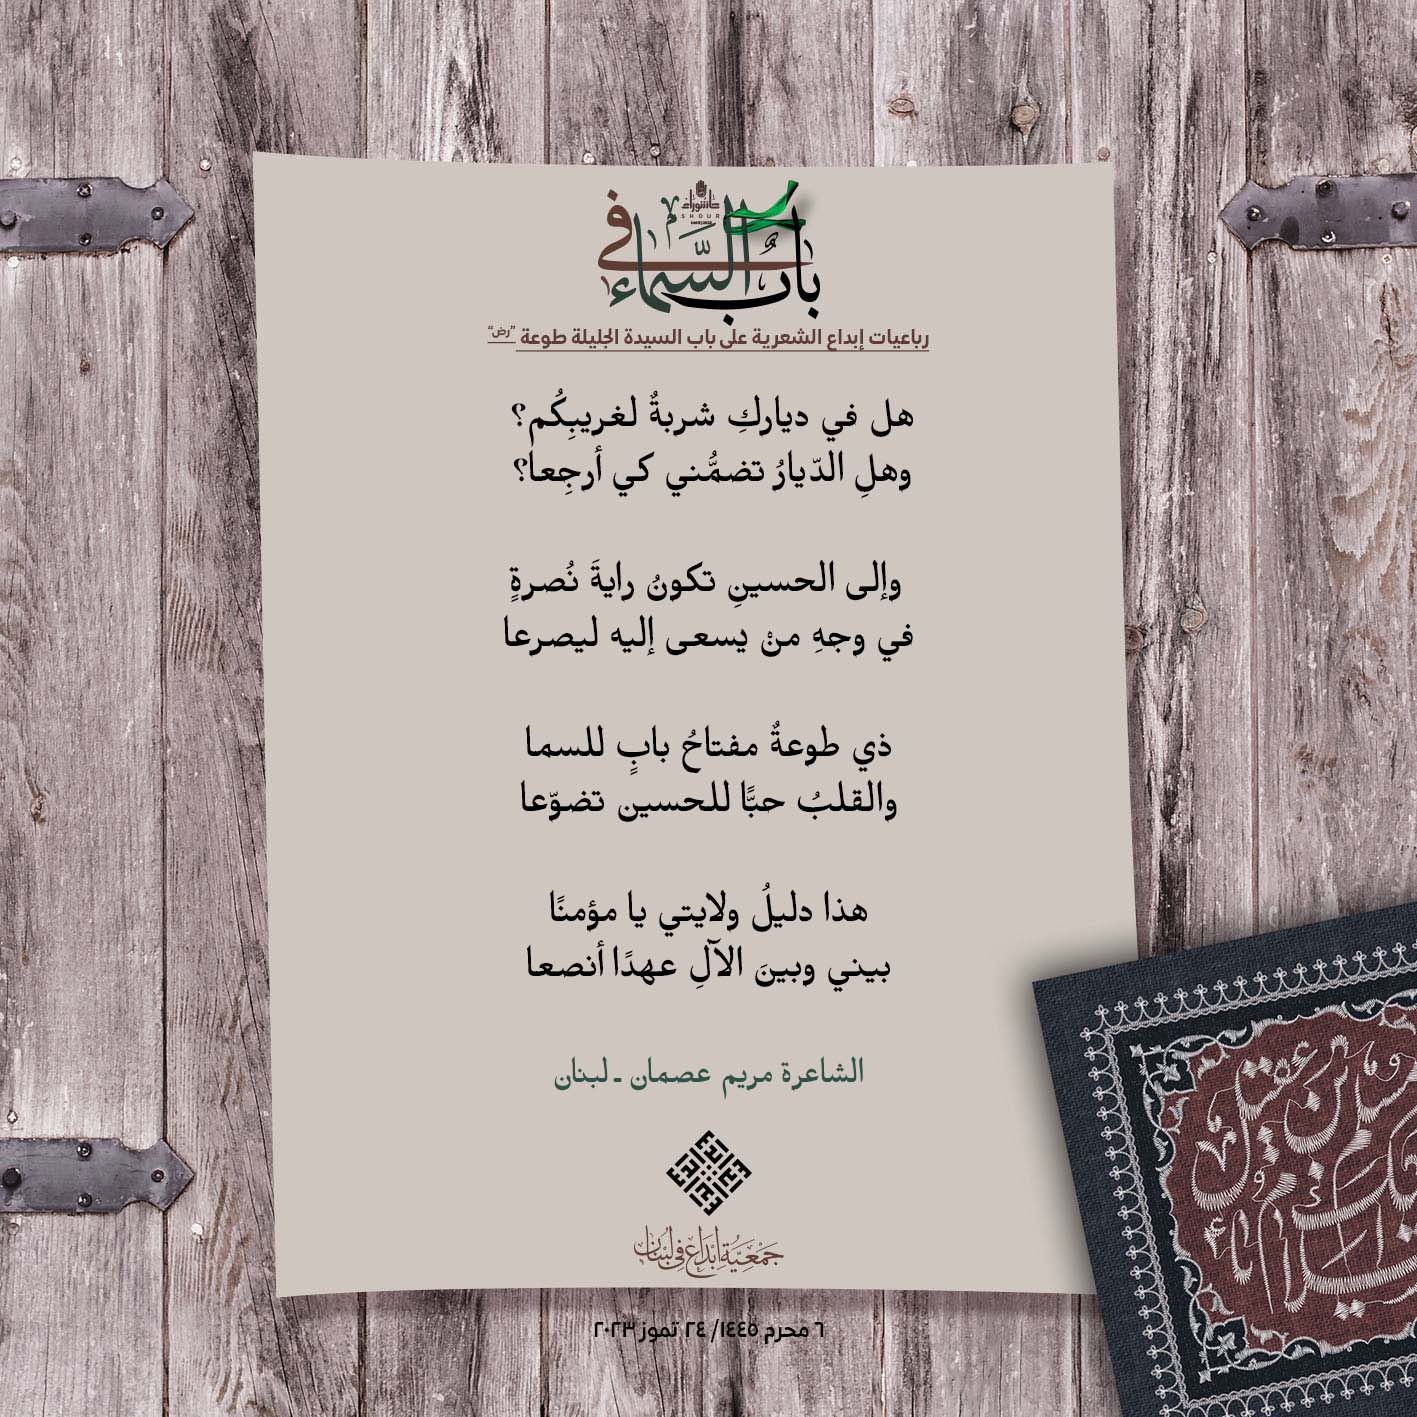 عاشوراء
ASHOURA
باب في السَّماء
رباعيات إبداع الشعرية على باب السيدة الجليلة طوعة "رض"
هل في دياركِ شربةٌ لغريبِكُم؟
وهلِ الدّيارُ تضمُّني كي أرجِعا؟
وإلى الحسينِ تكونُ رايةَ نُصرةٍ
في وجهِ منْ يسعى إليه ليصرعا
ذي طوعةٌ مفتاحُ بابٍ للسما
والقلبُ حبًّا للحسين تضوّعا
هذا دليلُ ولايتي يا مؤمنًا
بيني وبينَ الآلِ عهدًا أنصعا
الشاعرة مريم عصمان - لبنان
جمعيّة إبداع في لبنان
٦ محرم ١٤٤٥/ ٢٤ تموز ٢٠٢٣
السلام عليك يا مسلم بن عقيل